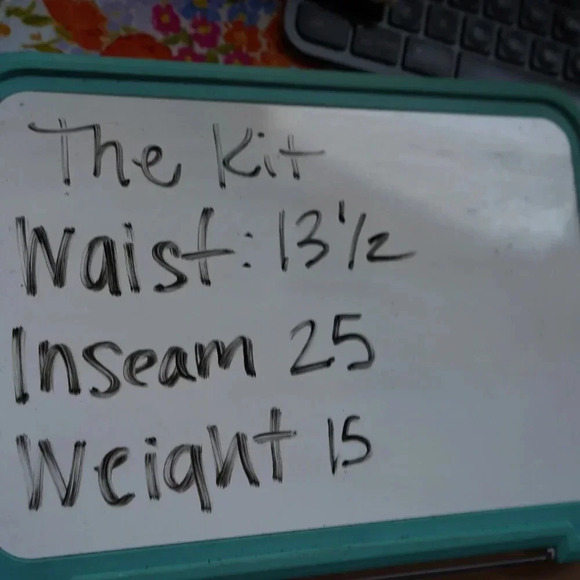 The Kit
Waist: 13 1/2
Inseam 25
Weight 15